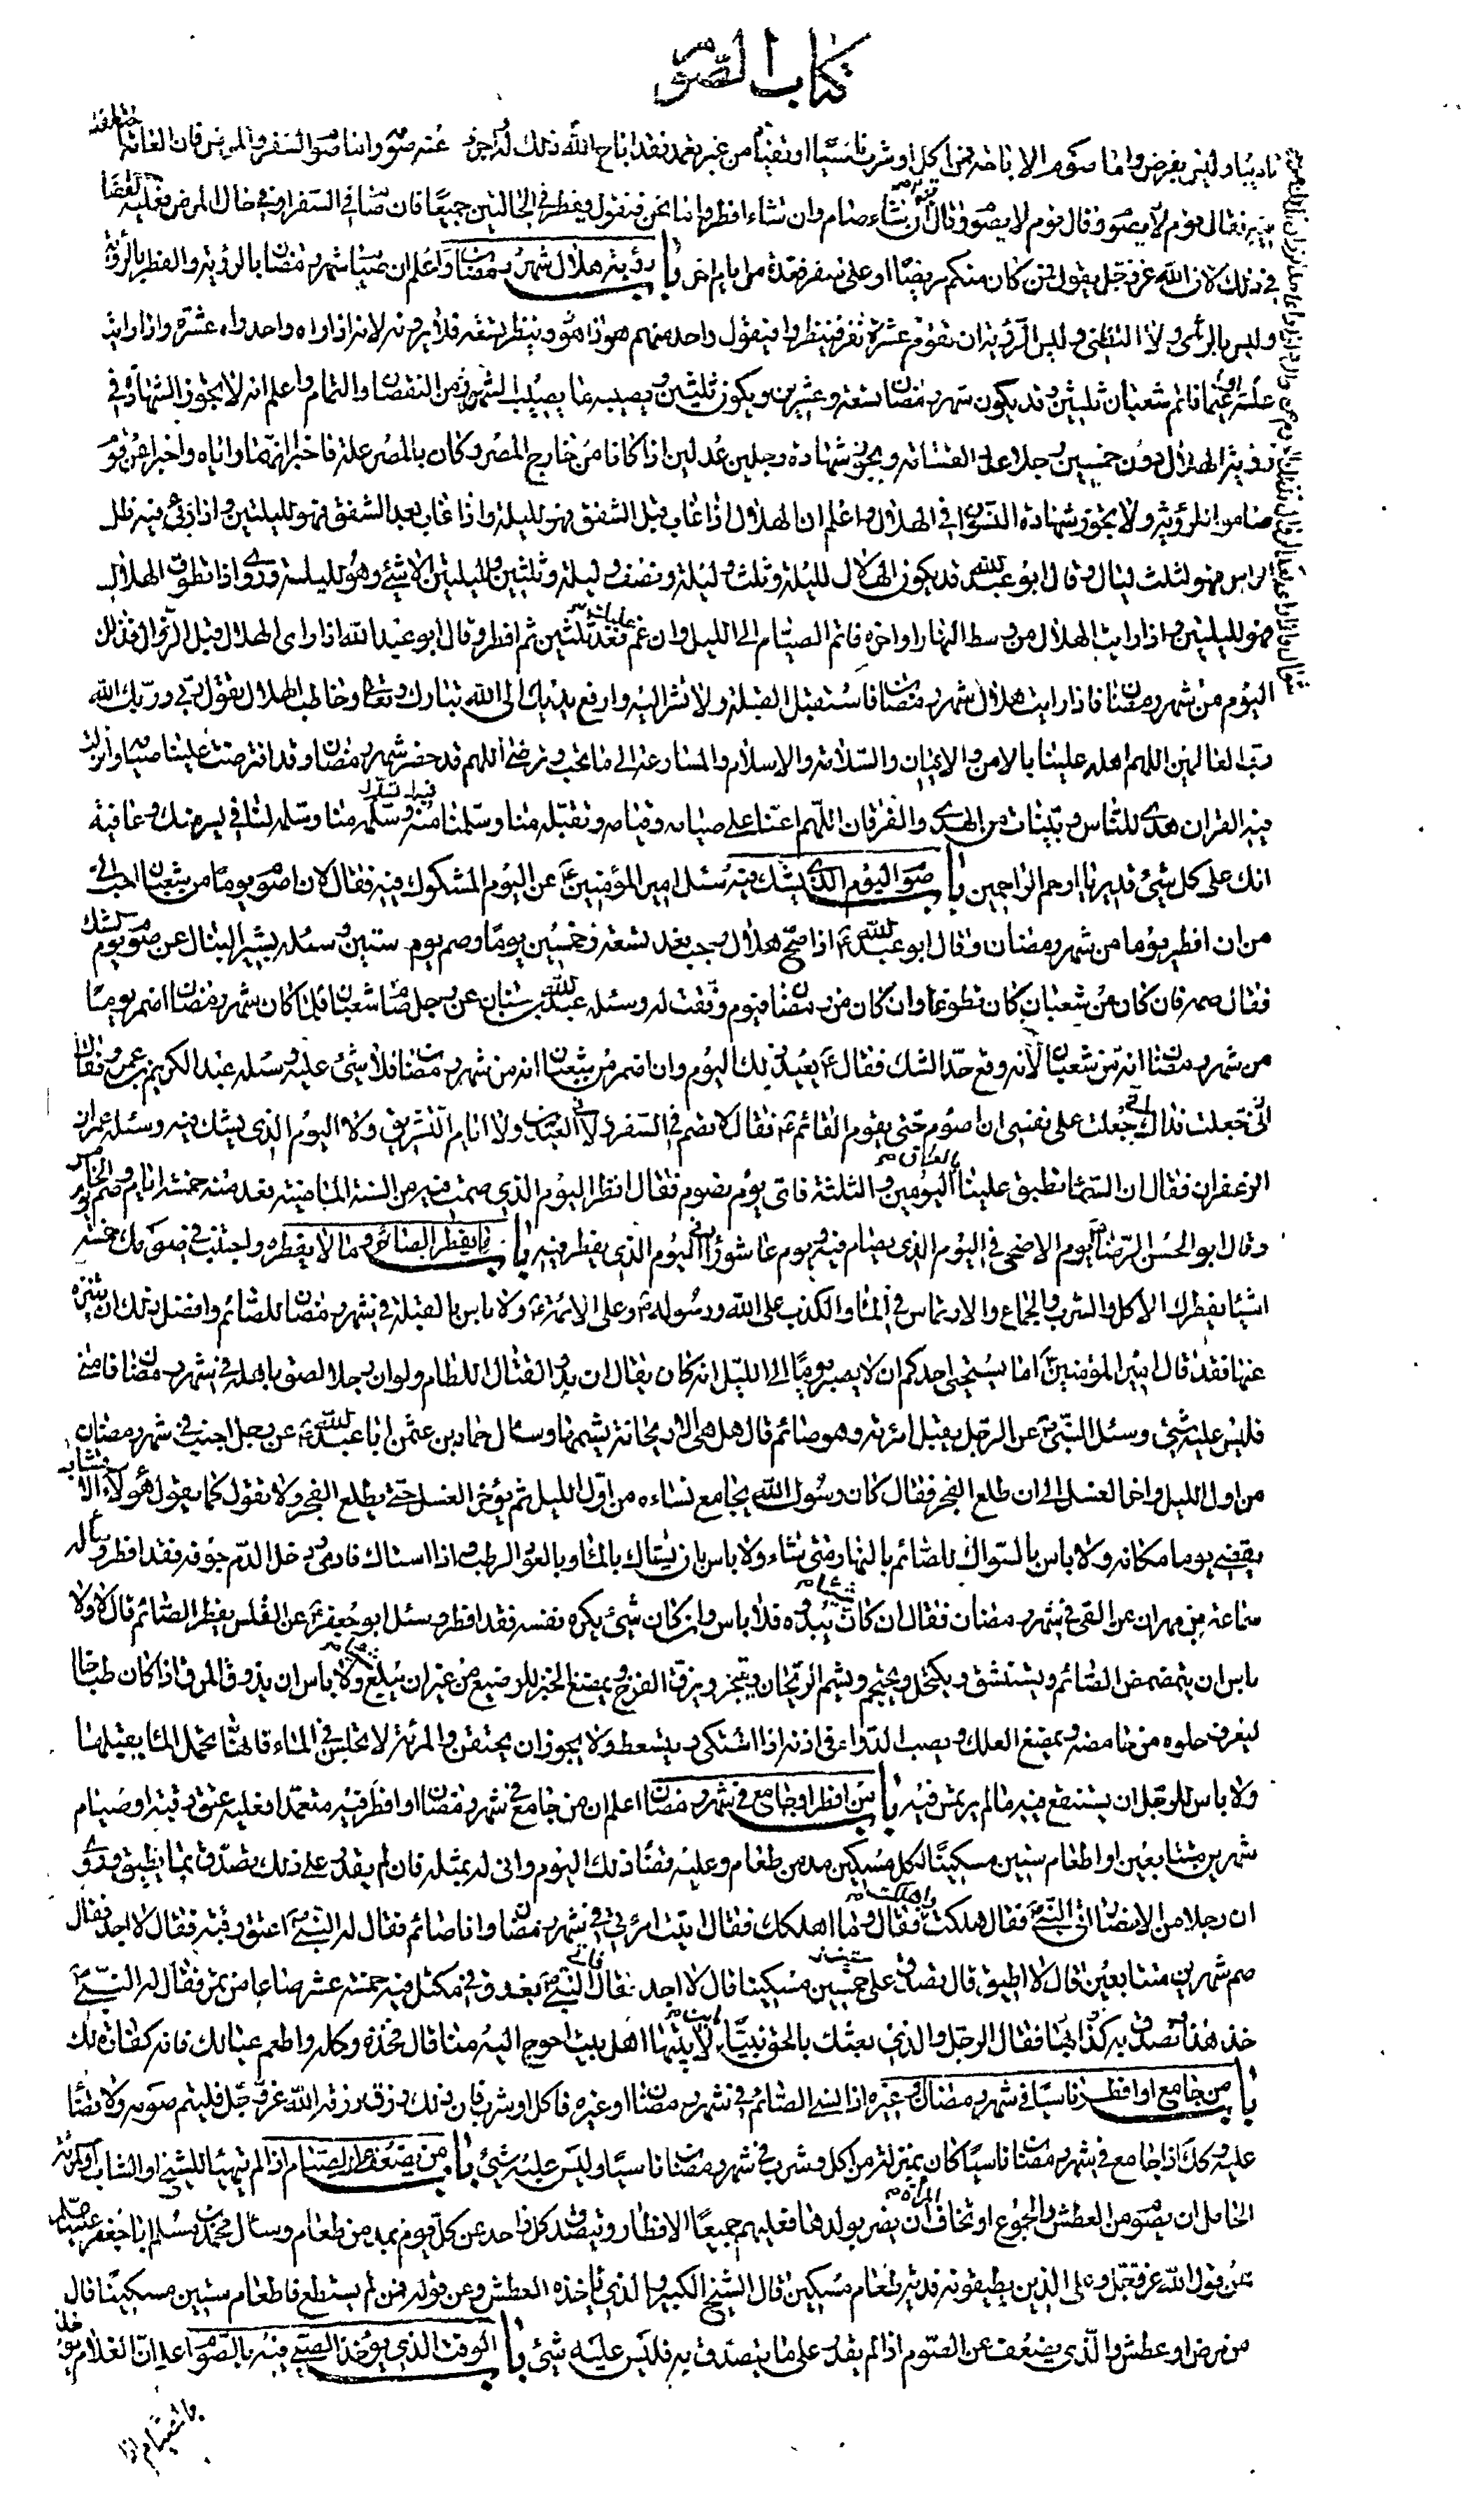 كتاب الصوم
تاديبا وليس بفرض واما صوم الاباحة فمن اكل او شرب ناسيا او تقيأ من غير تعمد فقد اباح الله ذلك له واجزء عنه صومه واما صوم السفر والمرض فان العامة اختلفت
فيه فقال قوم لا يصوم وقال قوم ان شاء صام وان شاء افطر واما نحن فنقول يفطر في الحالتين جميعا فان صام في السفر او في حال المرض فعليه القضا
في ذلك لان الله عز وجل يقول فمن كان منكم مريضا او على سفر فعدة من ايام اخر باب رؤية هلال شهر رمضان واعلم ان صيام شهر رمضان بالرؤية والفطر بالرؤية
وليس بالرأى ولا التظنى وليس الرؤية ان تقوم عشرة نفر فينظروا فيقول واحد منهم هوذا هو وينظر تسعة فلا يرونه لانه اذا راه واحد راه عشرة واذا رايت
علة او غيما فاتم شعبان ثلثين وقد يكون شهر رمضان تسعة وعشرين ويكون ثلثين ويصيبه ما يصيب الشهور من النقصان والتمام واعلم انه لا يجوز الشهادة في
رؤية الهلال دون خمسين رجلا عدد القسامة ويجوز شهادة رجلين عدلين اذا كانا من خارج المصر وكان بالمصر علة فاخبرا انهما راياه واخبرا عن قوم
صاموا للرؤية ولا يجوز شهادة النساء في الهلال واعلم ان الهلال اذا غاب قبل الشفق فهو لليلة واذا غاب بعد الشفق فهو لليلتين واذا رئى فيه ظل
الراس فهو لثلث ليال وقال ابو عبد الله قد يكون الهلال لليلة وثلث وليلة ونصف وليلة وثلثين ولليلتين الا شئ وهو لليلة وروى اذا تطوق الهلال
فهو لليلتين واذا رايت الهلال من وسط النهار او اخره فاتم الصيام الى الليل وان غم عليك فعد ثلثين ثم افطر وقال ابو عبد الله اذا راى الهلال قبل الزوال فذلك
اليوم من شهر رمضان فاذا رايت هلال شهر رمضان فاستقبل القبلة ولا تشر اليه وارفع يديك الى الله تبارك وتعالى وخاطب الهلال تقول ربي وربك الله
رب العالمين اللهم اهله علينا بالامن والايمان والسلامة والاسلام والمسارعة الى ما تحب وترضى اللهم قد حضر شهر رمضان وقد افترضت علينا صيامه وانزلت
فيه القران هدى للناس وبينات من الهدى والفرقان اللهم اعنا على صيامه وقيامه وتقبله منا وسلمنا فيه وسلمه منا وسلمه لنا في يسر منك وعافية
انك على كل شئ قدير يا ارحم الراحمين باب صوم اليوم الذي يشك فيه سئل امير المؤمنين ع عن اليوم المشكوك فيه فقال لان اصوم يوما من شعبان احب الى
من ان افطر يوما من شهر رمضان وقال ابو عبد الله ع اذا صح هلال رجب فعد تسعة وخمسين يوما وصم يوم ستين وسئله بشير النبال عن صوم يوم الشك
فقال صمه فان كان من شعبان كان تطوعا وان كان من رمضان فيوم وفقت له وسئله عبد الله بن سنان عن رجل صام شعبان فلما كان شهر رمضان اضمر يوما
من شهر رمضان انه من شعبان لانه وقع حد الشك فقال ع يعيد ذلك اليوم وان اضمر من شعبان انه من شهر رمضان فلا شئ عليه وسئله عبد الكريم بن عمرو فقال
انى جعلت فداك جعلت على نفسي ان اصوم حتى يقوم القائم ع فقال لا تصم في السفر ولا العيدين ولا ايام التشريق ولا اليوم الذي يشك فيه وسئله عمران
الزعفراني فقال ان السماء تطبق علينا بالعراق اليومين والثلثة فاى يوم نصوم فقال انظر اليوم الذي صمت فيه من السنة الماضية فعد منه خمسة ايام وصم يوم الخامس
وقال ابو الحسن الرضا ع يوم الاضحى في اليوم الذي يصام فيه ويوم عاشورا في اليوم الذي يفطر فيه باب ما يفطر الصائم وما لا يفطره واجتنب في صومك خمسة
اشياء يفطرك الاكل والشرب والجماع والارتماس في الماء والكذب على الله ورسوله وعلى الائمة ع ولا باس بالقبلة في شهر رمضان للصائم وافضل ذلك ان يتنزه
عنها فقد قال امير المؤمنين ع اما يستحيى احدكم ان لا يصبر يوما الى الليل انه كان يقال ان بدو القتال اللطام ولو ان رجلا لصق باهله في شهر رمضان فامنى
فليس عليه شئ وسئل النبي ص عن الرجل يقبل امرته وهو صائم قال هل هى الا ريحانة يشمها وسئل حماد بن عثمن ابا عبد الله ع عن رجل اجنب في شهر رمضان
من اول الليل واخر الغسل الى ان طلع الفجر فقال كان رسول الله يجامع نساءه من اول الليل ثم يؤخر الغسل حتى يطلع الفجر ولا نقول كما يقول هؤلاء الاقشاب
يقضى يوما مكانه ولا باس بالسواك للصائم بالنهار متى شاء ولا باس بان يستاك بالماء وبالعود الرطب واذا استاك فادمى ودخل الدم جوفه فقد افطر وسأله
سماعة بن مهران عن القي في شهر رمضان فقال ان كان شئ يبدره فلا باس وان كان شئ يكره نفسه فقد افطر وسئل ابو جعفر ع عن القلس يفطر الصائم قال لا ولا
باس ان يتمضمض الصائم ويستنشق ويكتحل ويحتجم ويشم الريحان ويتبخر ويزق الفرخ ويمضغ الخبز للرضيع من غير ان يبلع ولا باس ان يذوق المرق اذا كان طباخا
ليعرف حلوه من حامضه ويمضغ العلك ويصب الدواء في اذنه اذا اشتكى ويتسعط ولا يجوز ان يحتقن والمرئة لا تجلس في الماء فانها تحمل الماء بقبلها
ولا باس للرجل ان يستنقع فيه مالم يرتمس فيه باب من افطر او جامع في شهر رمضان اعلم ان من جامع في شهر رمضان او افطر فيه متعمدا فعليه عتق رقبة او صيام
شهرين متتابعين او اطعام ستين مسكينا لكل مسكين مد من طعام وعليه قضاء ذلك اليوم وانى له بمثله فان لم يقدر على ذلك تصدق بما يطيق وروى
ان رجلا من الانصار اتى النبي ص فقال هلكت واهلكت فقال وما اهلكك فقال اتيت امرئتي في شهر رمضان وانا صائم فقال له النبي ص اعتق رقبة فقال لا اجد فقال
صم شهرين متتابعين قال لا اطيق قال تصدق على ستين مسكينا قال لا اجد فقال النبي ص بعذق في مكتل فيه خمسة عشر صاعا من تمر فقال له النبي ص
خذ هذا وتصدق به فقال الرجل والذي بعثك بالحق نبيا ما بين لابتيها اهل بيت احوج اليه منا قال فخذه وكله واطعم عيالك فانه كفارة لك
باب من جامع او افطر ناسيا في شهر رمضان او غيره اذا نسى الصائم في شهر رمضان او غيره فاكل او شرب فان ذلك رزق رزقه الله عز وجل فليتم صومه ولا قضاء
عليه وكك اذا جامع في شهر رمضان ناسيا كان بمنزلة من اكل وشرب في شهر رمضان ناسيا وليس عليه شئ باب من يضعف عن الصيام اذا لم يتهيأ للشيخ او الشاب او المرئة
الحامل ان يصوم من العطش والجوع او تخاف المرأة ان يضر بولدها فعليهم جميعا الافطار وتصدق كل واحد عن كل يوم بمد من طعام وسأل محمد بن مسلم ابا جعفر عليه السلام
عن قول الله عز وجل وعلى الذين يطيقونه فدية طعام مسكين قال الشيخ الكبير والذي ياخذه العطش وعن قوله فمن لم يستطع فاطعام ستين مسكينا قال
من مرض او عطش والذي يضعف عن الصوم اذا لم يقدر على ما يتصدق به فليس عليه شئ باب الوقت الذي يؤخذ الصبي فيه بالصوم اعلم ان الغلام يؤخذ
بالصيام اذا